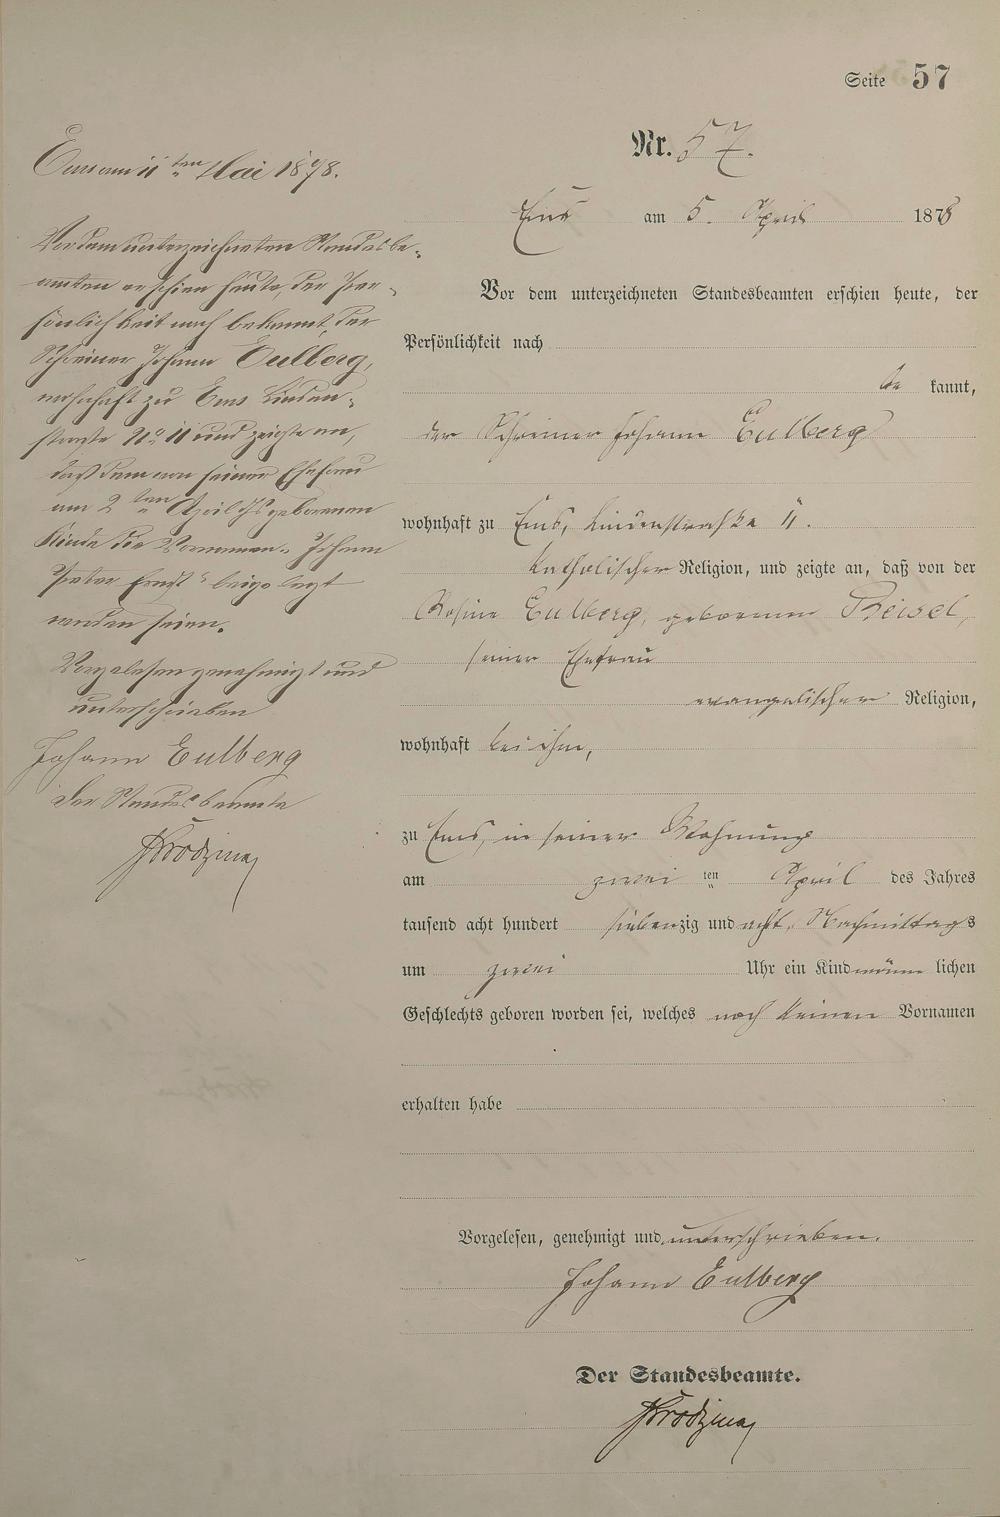 Seite 57
Nr. 57.
Ems am 5. April 1878
Vor dem unterzeichneten Standesbeamten erschien heute, der
Persönlichkeit nach
be kannt,
der Schreiner Johann Eulberg
wohnhaft zu Ems, Lindenstraße 11.
katholischer Religion, und zeigte an, daß von der
Rosine Eulberg, geborenen Beisel,
seiner Ehefrau
evangelischer Religion,
wohnhaft bei ihm,
zu Ems, in seiner Wohnung
am zwei ten April des Jahres
tausend acht hundert siebenzig und acht, Nachmittags
um zwei Uhr ein Kind männ lichen
Geschlechts geboren worden sei, welches noch keinen Vornamen
erhalten habe
Vorgelesen, genehmigt und unterschrieben.
Johann Eulberg
Der Standesbeamte.
Ems am 11ten Mai 1878.
Vor dem unterzeichneten Standesbe-
amten erschien heute, der Per-
sönlichkeit nach bekannt, der
Schreiner Johann Eulberg,
wohnhaft zu Ems Linden-
straße No 11 und zeigte an,
daß dem von seiner Ehefrau
am 2ten April Js geborenen
Kinde die Vornamen "Johann
Peter Ernst" beigelegt
worden seien.
Vorgelesen genehmigt und
unterschrieben
Johann Eulberg
Der Standesbeamte